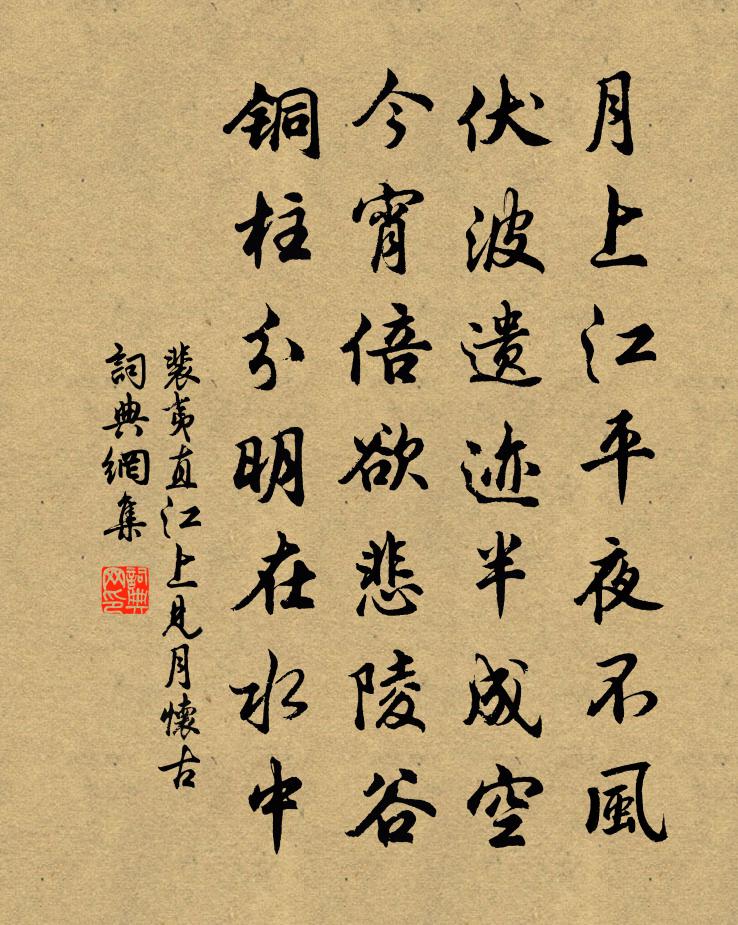 月上江平夜不風
伏波遺迹半成空
今宵倍欲悲陵谷
銅柱分明在水中
裴夷直江上見月懷古
詞典網集
詞典網印